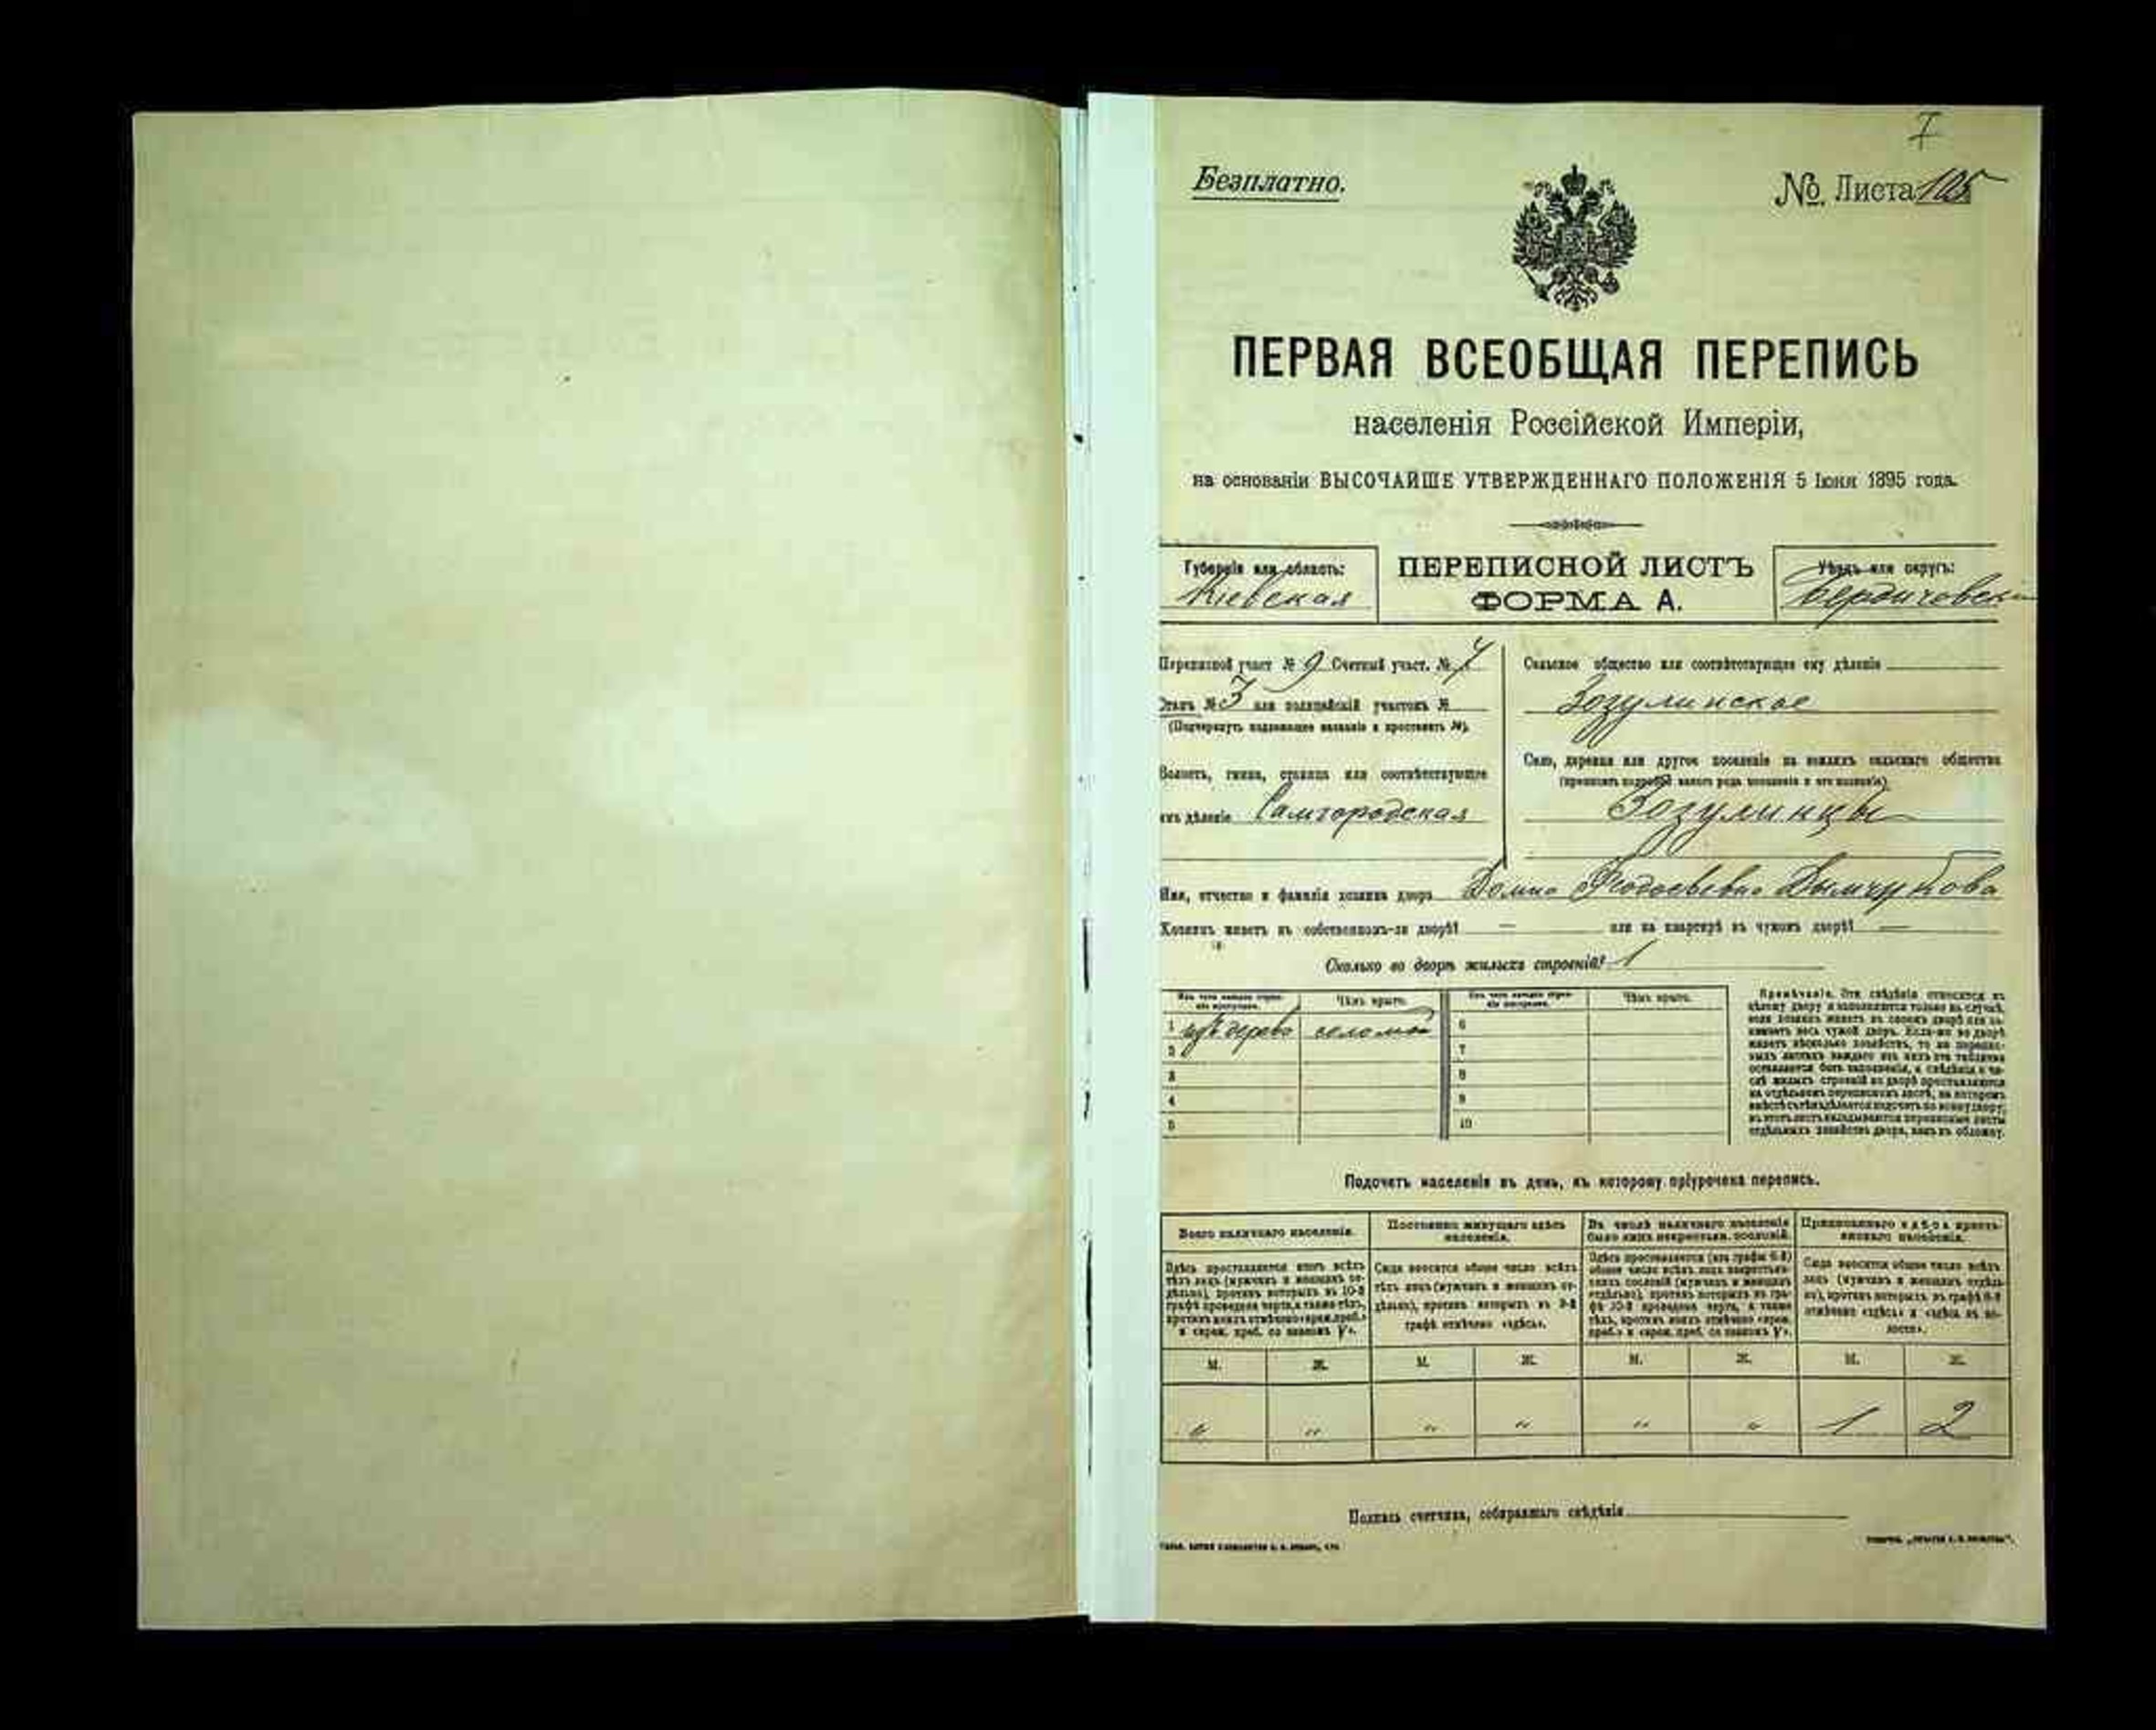 I
Безплатно.
№ Листа 105
ПЕРВАЯ ВСЕОБЩАЯ ПЕРЕПИСЬ
населенія Россійской Имперіи,
на основаніи ВЫСОЧАЙШЕ УТВЕРЖДЕННАГО ПОЛОЖЕНІЯ 5 Іюня 1895 года.
Губернія или область:
Кіевская
ПЕРЕПИСНОЙ ЛИСТЪ
ФОРМА А.
Уѣздъ или округъ:
Бердичовскій
Переписной участ № 9 Счетный участ. № 7
Станъ № 3 или полицейскій участокъ №
(Подчеркнуть надлежащее названіе и проставить №).
Волость, гмина, станица или соотвѣтствующее
имъ дѣленіе Самгородская
Сельское общество или соотвѣтствующее ему дѣленіе
Зозулинское
Село, деревня или другое поселеніе на земляхъ сельскаго общества
(прописать подробно какого рода поселеніе и его названіе)
Зозулинцы
Имя, отчество и фамилія хозяина двора Домна Феодосѣевна
Хозяинъ живетъ въ собственномъ-ли дворѣ? — или на квартирѣ въ чужомъ дворѣ? —
Сколько во дворѣ жилыхъ строеній? 1
Чѣмъ крыто.
Чѣмъ крыто.
1 изъ дерева соломой 6
2 7
3 8
4 9
5 10
Примѣчаніе. Эти свѣдѣнія относятся къ
цѣлому двору и заполняются только въ случаѣ,
если хозяинъ живетъ въ своемъ дворѣ или за-
нимаетъ весь чужой дворъ. Если-же во дворѣ
живетъ нѣсколько хозяйствъ, то на перепис-
ныхъ листахъ каждаго изъ нихъ эта табличка
оставляется безъ заполненія, а свѣдѣнія о чи-
слѣ жилыхъ строеній во дворѣ проставляются
на отдѣльномъ переписномъ листѣ, на которомъ
въ этотъ листъ вкладываются переписные листы
отдѣльныхъ хозяйствъ двора, какъ въ обложку.
Подсчетъ населенія въ день, къ которому пріурочена перепись.
Всего наличнаго населенія.
Здѣсь проставляется итогъ всѣхъ
тѣхъ лицъ (мужчинъ и женщинъ от-
дѣльно), противъ которыхъ въ 10-й
графѣ проведена черта, а также тѣхъ,
противъ коихъ отмѣчено «врем. преб.»
и «врем. преб. со знакомъ V».
Постоянно живущаго здѣсь
населенія.
Сюда вносится общее число всѣхъ
тѣхъ лицъ (мужчинъ и женщинъ от-
дѣльно), противъ которыхъ въ 9-й
графѣ отмѣчено «здѣсь».
Въ числѣ наличнаго населенія
было лицъ некрестьян. сословій.
Здѣсь проставляется (изъ графы 6-й)
общее число всѣхъ лицъ некрестьян-
скихъ сословій (мужчинъ и женщинъ
отдѣльно), противъ которыхъ въ гра-
фѣ 10-й проведена черта, а также
тѣхъ, противъ коихъ отмѣчено «врем.
преб.» и «врем. преб. со знакомъ V».
Приписаннаго здѣсь кресть-
янскаго населенія.
Сюда вносится общее число всѣхъ
лицъ (мужчинъ и женщинъ отдѣль-
но), противъ которыхъ въ графѣ 8-й
отмѣчено «здѣсь» и «здѣсь въ во-
лости».
М. Ж. М. Ж. М. Ж. М. Ж.
" " " " " " 1 2
Подпись счетчика, собиравшаго свѣдѣнія